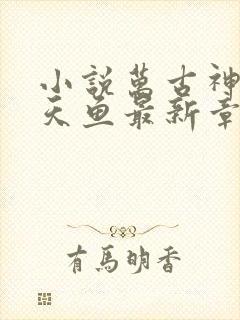 小説萬古神
天魚最新章
有馬明香